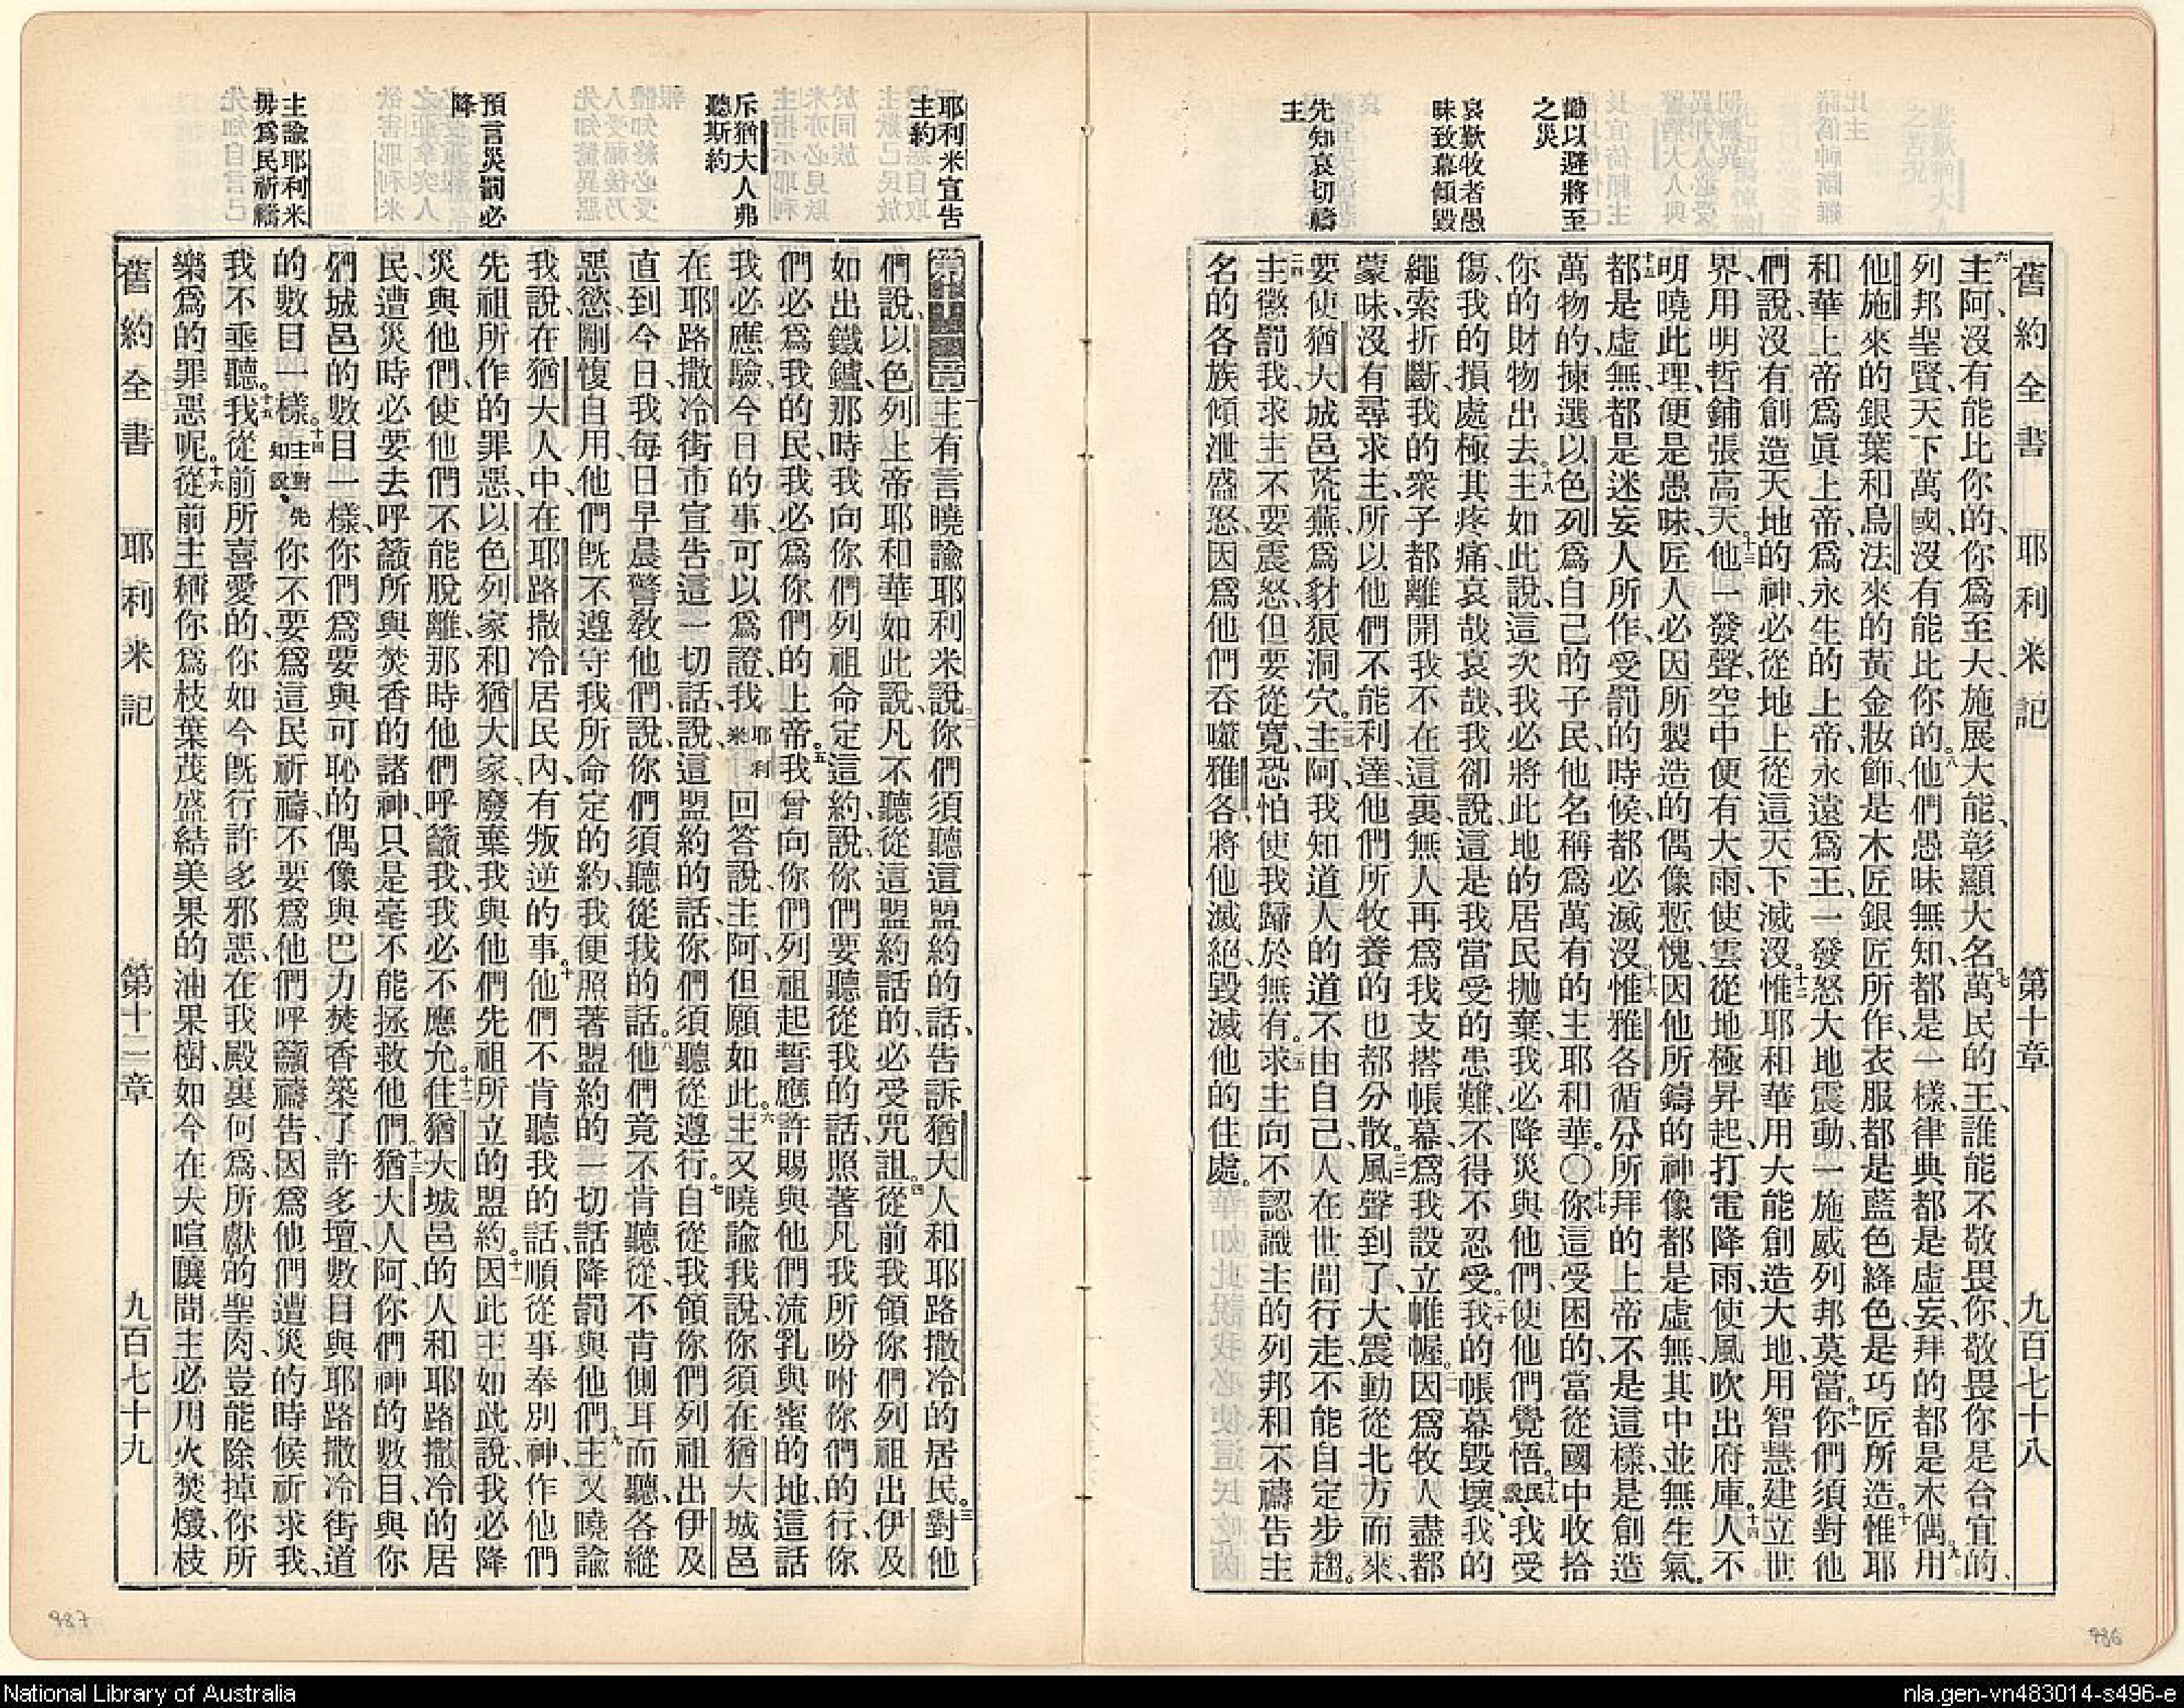 舊約全書 耶利米記 第十章 九百七十八
勸以避將至
之災
哀歎牧者愚
昧致幕傾毀
先知哀切禱
主
六主阿、沒有能比你的、你爲至大、施展大能、彰顯大名、七萬民的王、誰能不敬畏你、敬畏你是合宜的、
列邦聖賢、天下萬國、沒有能比你的。八他們愚昧無知、都是一樣、律典都是虛妄、拜的都是木偶。九用
他施來的銀葉、和烏法來的黃金妝飾、是木匠銀匠所作、衣服都是藍色絳色、是巧匠所造。十惟耶
和華上帝爲眞上帝、爲永生的上帝、永遠爲王、一發怒大地震動、一施威列邦莫當。十一你們須對他
們說、沒有創造天地的神、必從地上從這天下滅沒。十二惟耶和華用大能創造大地、用智慧建立世
界、用明哲鋪張高天。十三他一發聲、空中便有大雨、使雲從地極昇起、打電降雨、使風吹出府庫。十四人不
明曉此理、便是愚昧、匠人必因所製造的偶像慙愧、因他所鑄的神像都是虛無、其中並無生氣。
十五都是虛無、都是迷妄人所作、受罰的時候、都必滅沒。十六惟雅各循分所拜的上帝不是這樣、是創造
萬物的、揀選以色列爲自己的子民、他名稱爲萬有的主耶和華。〇十七你這受困的、當從國中收拾
你的財物出去。十八主如此說、這次我必將此地的居民拋棄、我必降災與他們、使他們覺悟。十九民說、我受
傷、我的損處極其疼痛、哀哉哀哉、我卻說、這是我當受的患難、不得不忍受。二十我的帳幕毀壞、我的
繩索折斷、我的衆子都離開我、不在這裏、無人再爲我支搭帳幕、爲我設立帷幄。二一因爲牧人盡都
蒙昧、沒有尋求主、所以他們不能利達、他們所牧養的也都分散。二二風聲到了、大震動從北方而來、
要使猶大城邑荒蕪、爲豺狼洞穴。二三主阿、我知道人的道不由自己、人在世間行走、不能自定步趨。
二四主懲罰我、求主不要震怒、但要從寬、恐怕使我歸於無有。二五求主向不認識主的列邦、和不禱告主
名的各族、傾泄盛怒、因爲他們吞噬雅各、將他滅絕、毀滅他的住處。
耶利米宣告
主約
斥猶大人弗
聽斯約
預言災罰必
降
主諭耶利米
毋爲民祈禱
第十一章 一主有言曉諭耶利米說、二你們須聽這盟約的話、告訴猶大人和耶路撒冷的居民。三對他
們說、以色列上帝耶和華如此說、凡不聽從這盟約話的、必受咒詛。四從前我領你們列祖出伊及
如出鐵鑪、那時我向你們列祖命定這約說、你們要聽從我的話、照著凡我所吩咐你們的行、你
們必爲我的民、我必爲你們的上帝。五我曾向你們列祖起誓、應許賜與他們流乳與蜜的地、這話
我必應驗、今日的事、可以爲證、我耶利米回答說、主阿、但願如此。六主又曉諭我說、你須在猶大城邑
在耶路撒冷街市、宣告這一切話、說、這盟約的話、你們須聽從遵行。七自從我領你們列祖出伊及
直到今日、我每日早晨警敎他們、說、你們須聽從我的話。八他們竟不肯聽從、不肯側耳而聽、各縱
惡慾、剛愎自用、他們旣不遵守我所命定的約、我便照著盟約的一切話、降罰與他們。九主又曉諭
我說、在猶大人中、在耶路撒冷居民內、有叛逆的事。十他們不肯聽我的話、順從事奉別神、作他們
先祖所作的罪惡、以色列家和猶大家、廢棄我與他們先祖所立的盟約。十一因此主如此說、我必降
災與他們、使他們不能脫離、那時他們呼籲我、我必不應允。十二住猶大城邑的人、和耶路撒冷的居
民、遭災時必要去呼籲所與焚香的諸神、只是毫不能拯救他們。十三猶大人阿、你們神的數目、與你
們城邑的數目一樣、你們爲要與可恥的偶像與巴力焚香、築了許多壇、數目與耶路撒冷街道
的數目一樣。十四主對先知說、你不要爲這民祈禱、不要爲他們呼籲禱告、因爲他們遭災的時候祈求我、
我不垂聽。十五我從前所喜愛的、你如今旣行許多邪惡、在我殿裏何爲、所獻的聖肉、豈能除掉你所
樂爲的罪惡呢。十六從前主稱你爲枝葉茂盛結美果的油果樹、如今在大喧讓間、主必用火焚燬、枝
舊約全書 耶利米記 第十一章 九百七十九
987
986
National Library of Australia
nla.gen-vn483014-s496-e